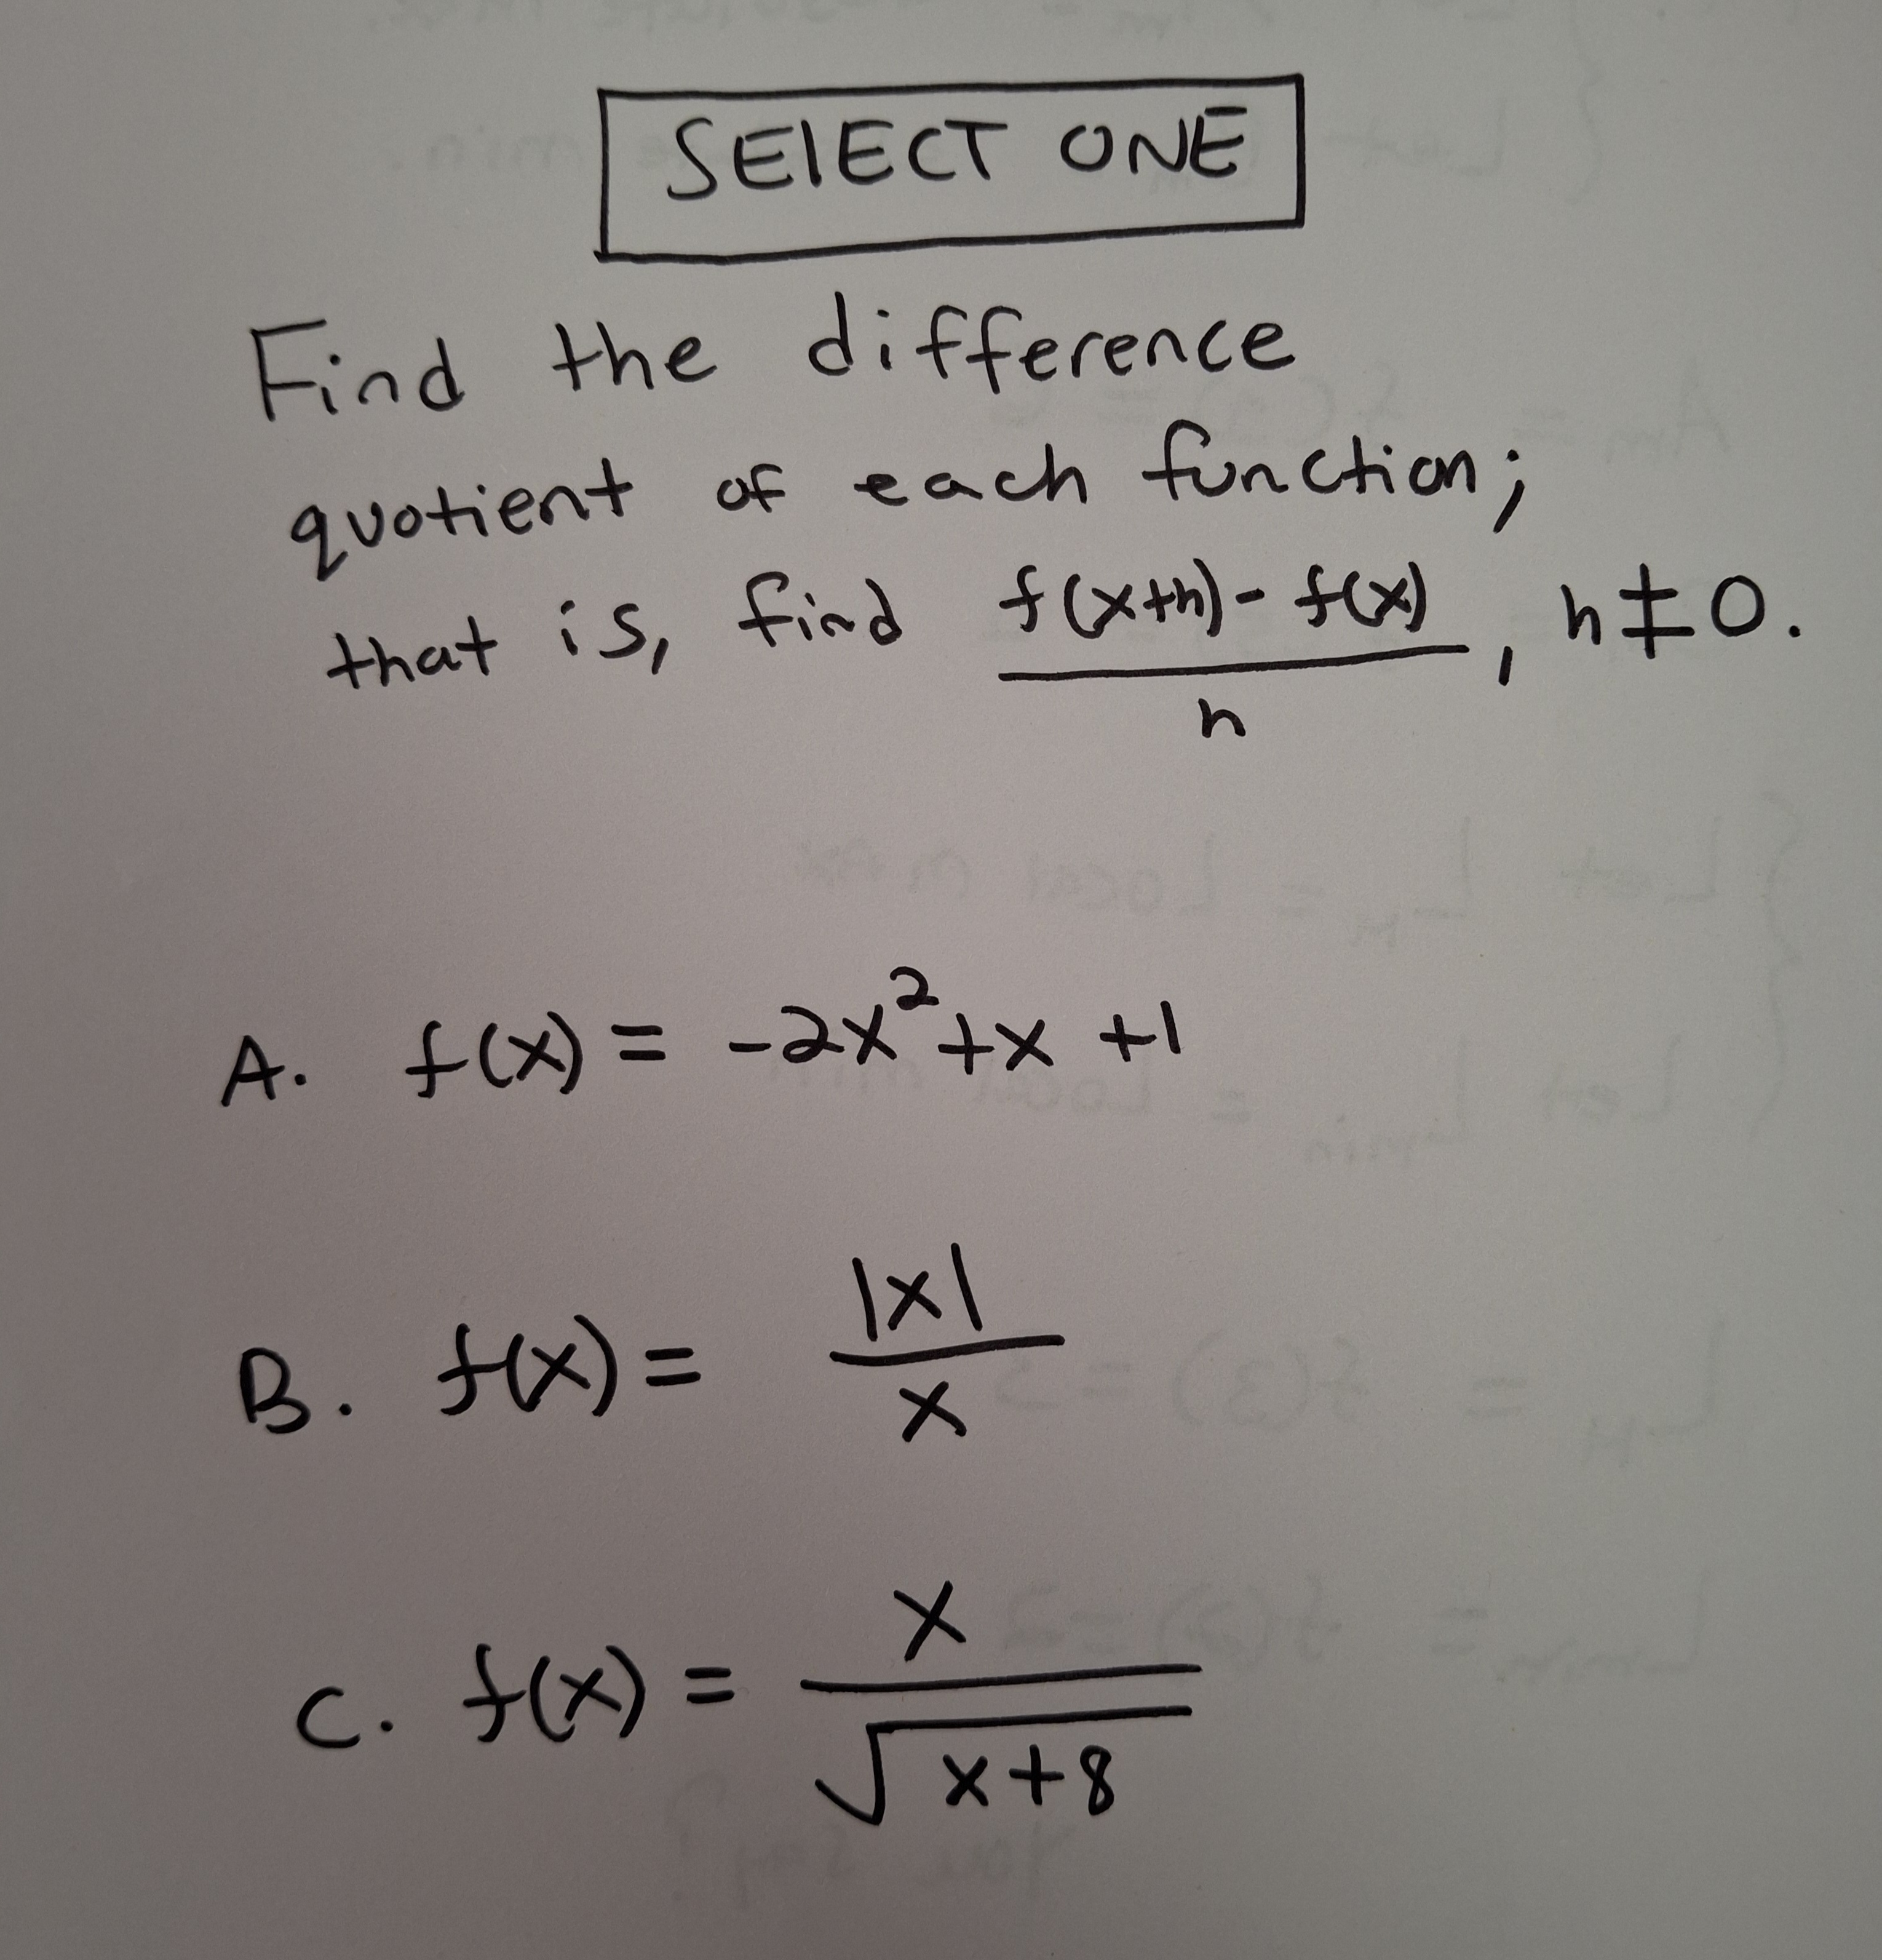 SElECT ONE
Find the difference
quotient of each function;
that is, find f(x+h) - f(x) / h, h ≠ 0.
A. f(x) = -2x² + x + 1
B. f(x) = |x| / x
C. f(x) = x / √x+8